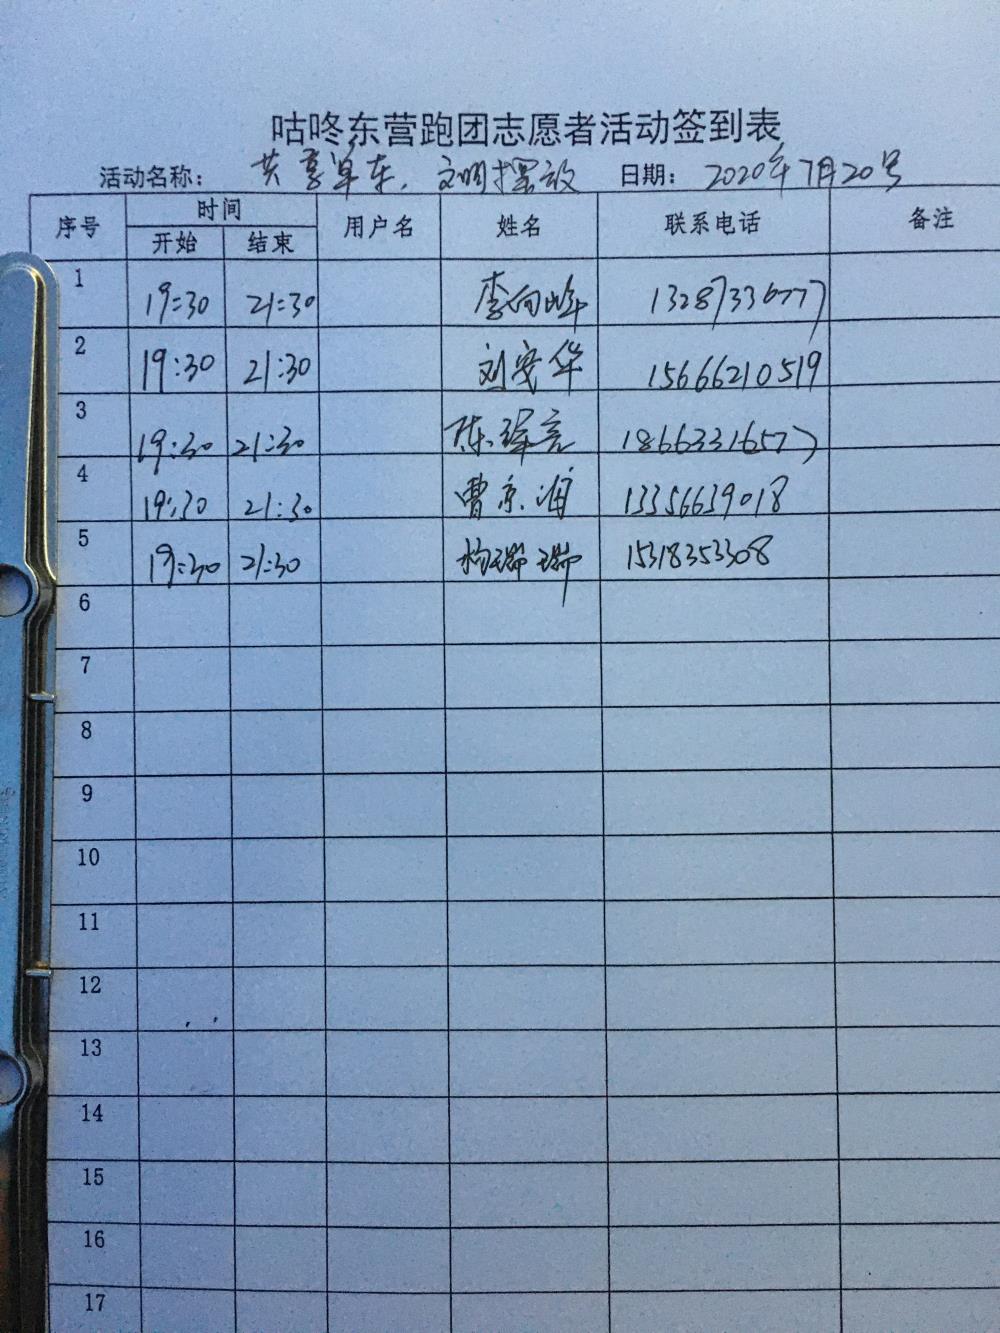 咕咚东营跑团志愿者活动签到表
活动名称： 共享单车、文明摆放 日期： 2020年7月20号
序号 时间 用户名 姓名 联系电话 备注
开始 结束
1 19:30 21:30 李向峰 13287336777
2 19:30 21:30 刘 华 15666210519
3 19:30 21:30 陈 亮 18663316577
4 19:30 21:30 曹京 13356639018
5 19:30 21:30 杨瑞瑞 15318353308
6
7
8
9
10
11
12
13
14
15
16
17